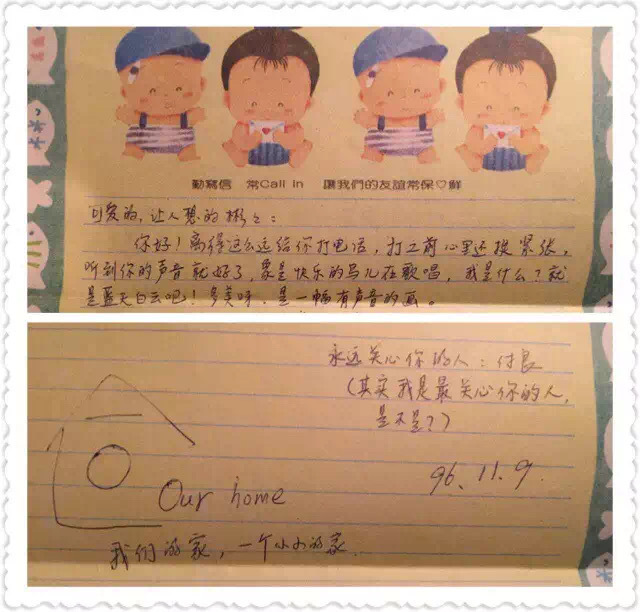 勤寫信 常Call in 讓我們的友誼常保♡鮮
可爱的，让人想的彬彬：
你好！离得这么远给你打电话，打之前心里还挺紧张，
听到你的声音就好了，象是快乐的鸟儿在歌唱，我是什么？就
是蓝天白云吧！多美呀，是一幅有声音的画。
永远关心你的人：付良
（其实我是最关心你的人，
是不是？）
96.11.9.
Our home
我们的家，一个小小的家.